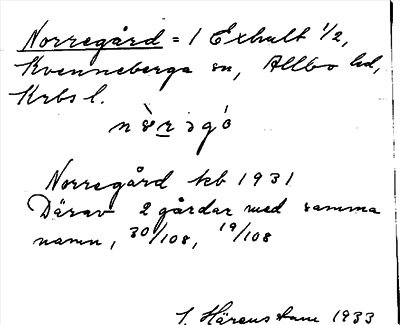 Norregård = 1 Exhult 1/2,
Kvenneberga sn, Allbo hd,
Krbs l.
Norregård kb 1931
Därav 2 gårdar med samma
namn, 30/108, 19/108
J. Härenstam 1933